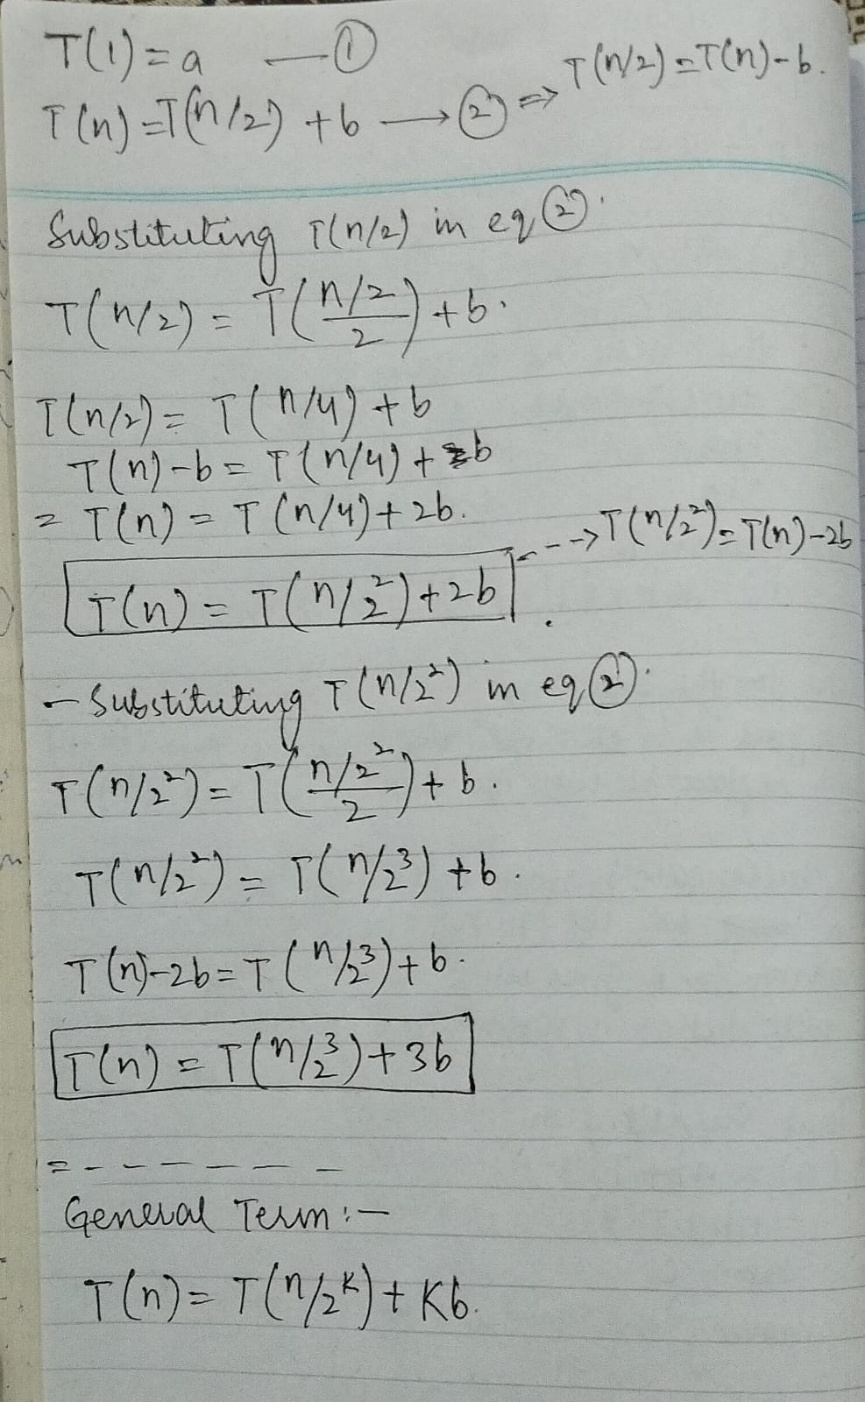 T(1) = a —①
T(n) = T(n/2) + b → ② ⇒ T(n/2) = T(n) - b.
Substituting T(n/2) in eq ②.
T(n/2) = T((n/2)/2) + b.
T(n/2) = T(n/4) + b
T(n) - b = T(n/4) + b
= T(n) = T(n/4) + 2b.
T(n) = T(n/2²) + 2b --→ T(n/2²) = T(n) - 2b
- Substituting T(n/2²) in eq ②.
T(n/2²) = T((n/2²)/2) + b.
T(n/2²) = T(n/2³) + b.
T(n) - 2b = T(n/2³) + b.
T(n) = T(n/2³) + 3b
= - - - - - -
General Term :-
T(n) = T(n/2ᴷ) + Kb.